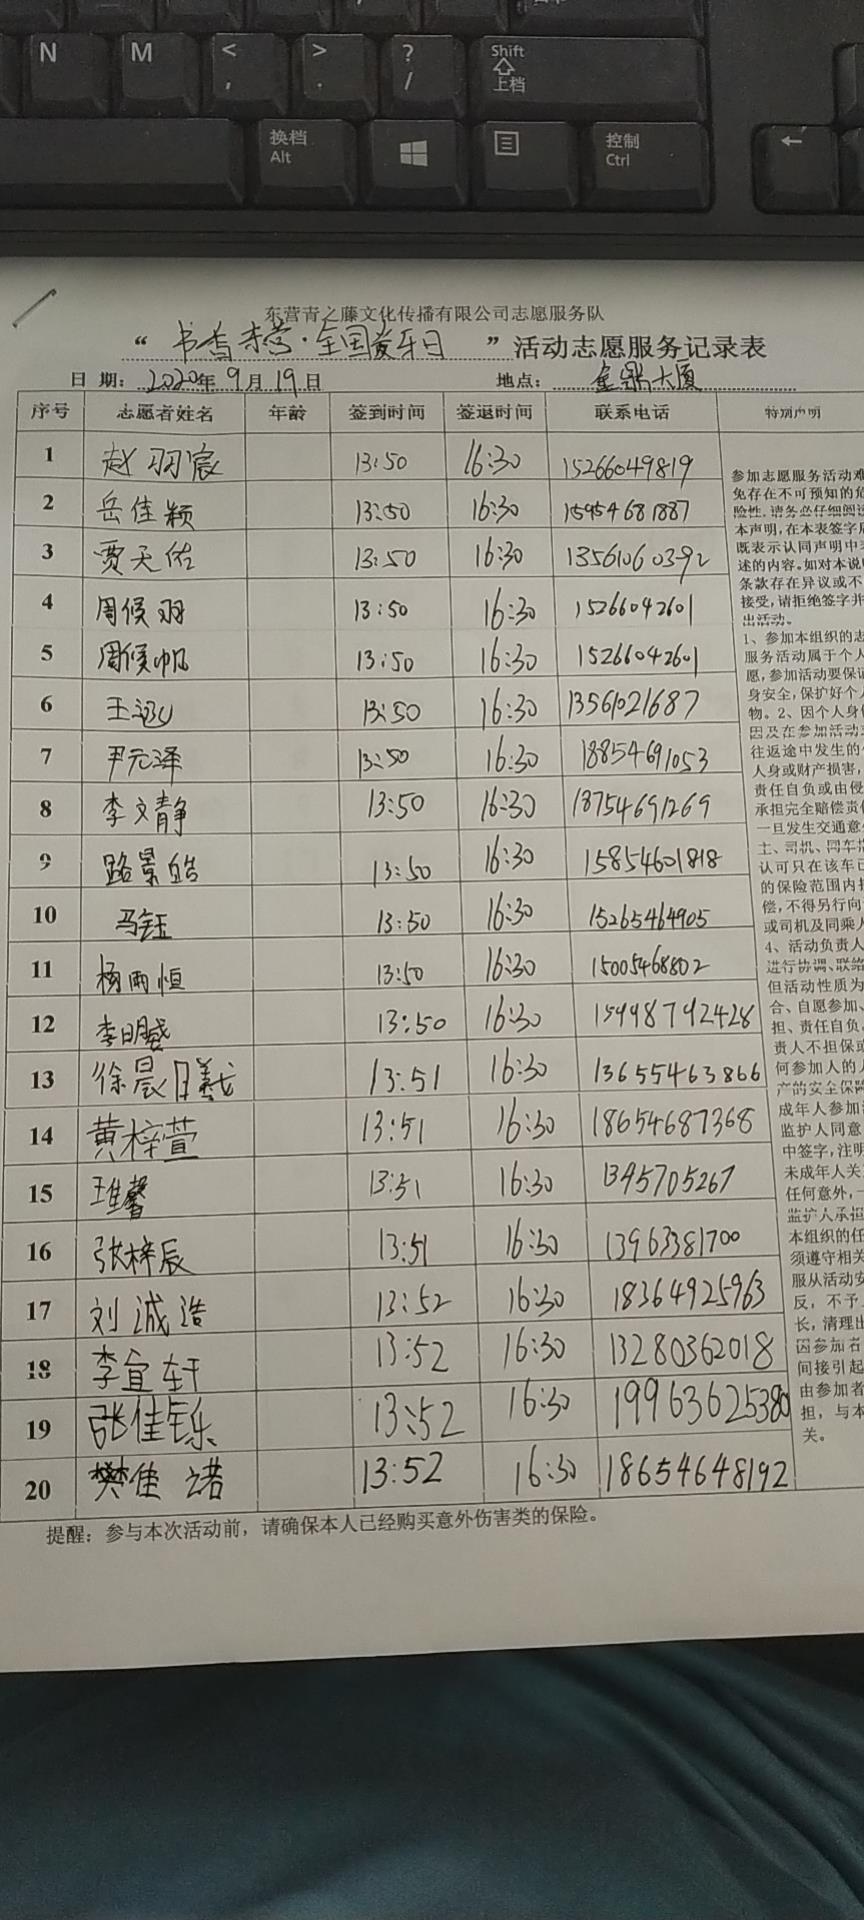 N M < , > . ? / Shift 上档
换档 Alt 控制 Ctrl ←
东营青之藤文化传播有限公司志愿服务队
“书香东营·全国爱牙日”活动志愿服务记录表
日 期：2020年9月19日 地点：金鼎大厦
序号 志愿者姓名 年龄 签到时间 签退时间 联系电话 特别声明
1 赵羽宸 13:50 16:30 15266049819
2 岳佳颖 13:50 16:30 15954681887
3 贾天佑 13:50 16:30 13561060392
4 周俣羽 13:50 16:30 15266042601
5 周俣帆 13:50 16:30 15266042601
6 王 13:50 16:30 13561021687
7 尹元泽 13:50 16:30 18854691053
8 李文静 13:50 16:30 18754691269
9 路景皓 13:50 16:30 15854601818
10 马钰 13:50 16:30 15265464905
11 杨雨恒 13:50 16:30 15005468802
12 李明 13:50 16:30 15998792428
13 徐晨曦 13:51 16:30 13655463866
14 黄梓萱 13:51 16:30 18654687368
15 王维馨 13:51 16:30 1395705267
16 张梓辰 13:51 16:30 13963381700
17 刘诚浩 13:52 16:30 18364925963
18 李宜轩 13:52 16:30 13280362018
19 张佳铄 13:52 16:30 19963625380
20 樊佳诺 13:52 16:30 18654648192
参加志愿服务活动难
免存在不可预知的危
险性，请务必仔细阅读
本声明，在本表签字后
既表示认同声明中
述的内容。如对本说明
条款存在异议或不
接受，请拒绝签字并
出活动。
1、参加本组织的志
服务活动属于个人
愿，参加活动要保证
身安全，保护好个人
物。2、因个人身
因及在参加活动
往返途中发生的
人身或财产损害，
责任自负或由侵
承担完全赔偿责
一旦发生交通意
主、司机、同车
认可只在该车已
的保险范围内
偿，不得另行向
或司机及同乘人
4、活动负责人
进行协调、联络
但活动性质为
合、自愿参加、
担、责任自负。
责人不担保或
何参加人的人
产的安全保险
成年人参加
监护人同意
中签字，注明
未成年人关
任何意外，
监护人承担
本组织的任
须遵守相关
服从活动安
反，不予
长，清理出
因参加者
间接引起
由参加者
担，与本
关。
提醒：参与本次活动前，请确保本人已经购买意外伤害类的保险。